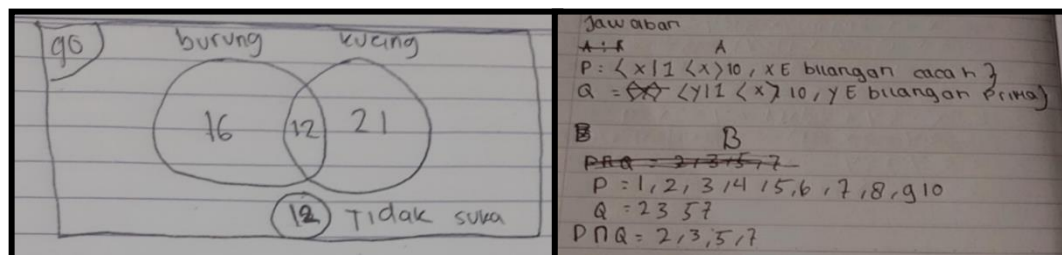 90
burung kucing
16 12 21
12 Tidak suka
Jawaban
A
P : < x | 1 < x > 10 , x E bilangan cacah }
Q = < y | 1 < x > 10 , y E bilangan Prima }
B
P∩Q = 2,3,5,7
P = 1, 2, 3, 4, 5, 6, 7, 8, 9 10
Q = 2 3 5 7
P∩Q = 2, 3, 5, 7